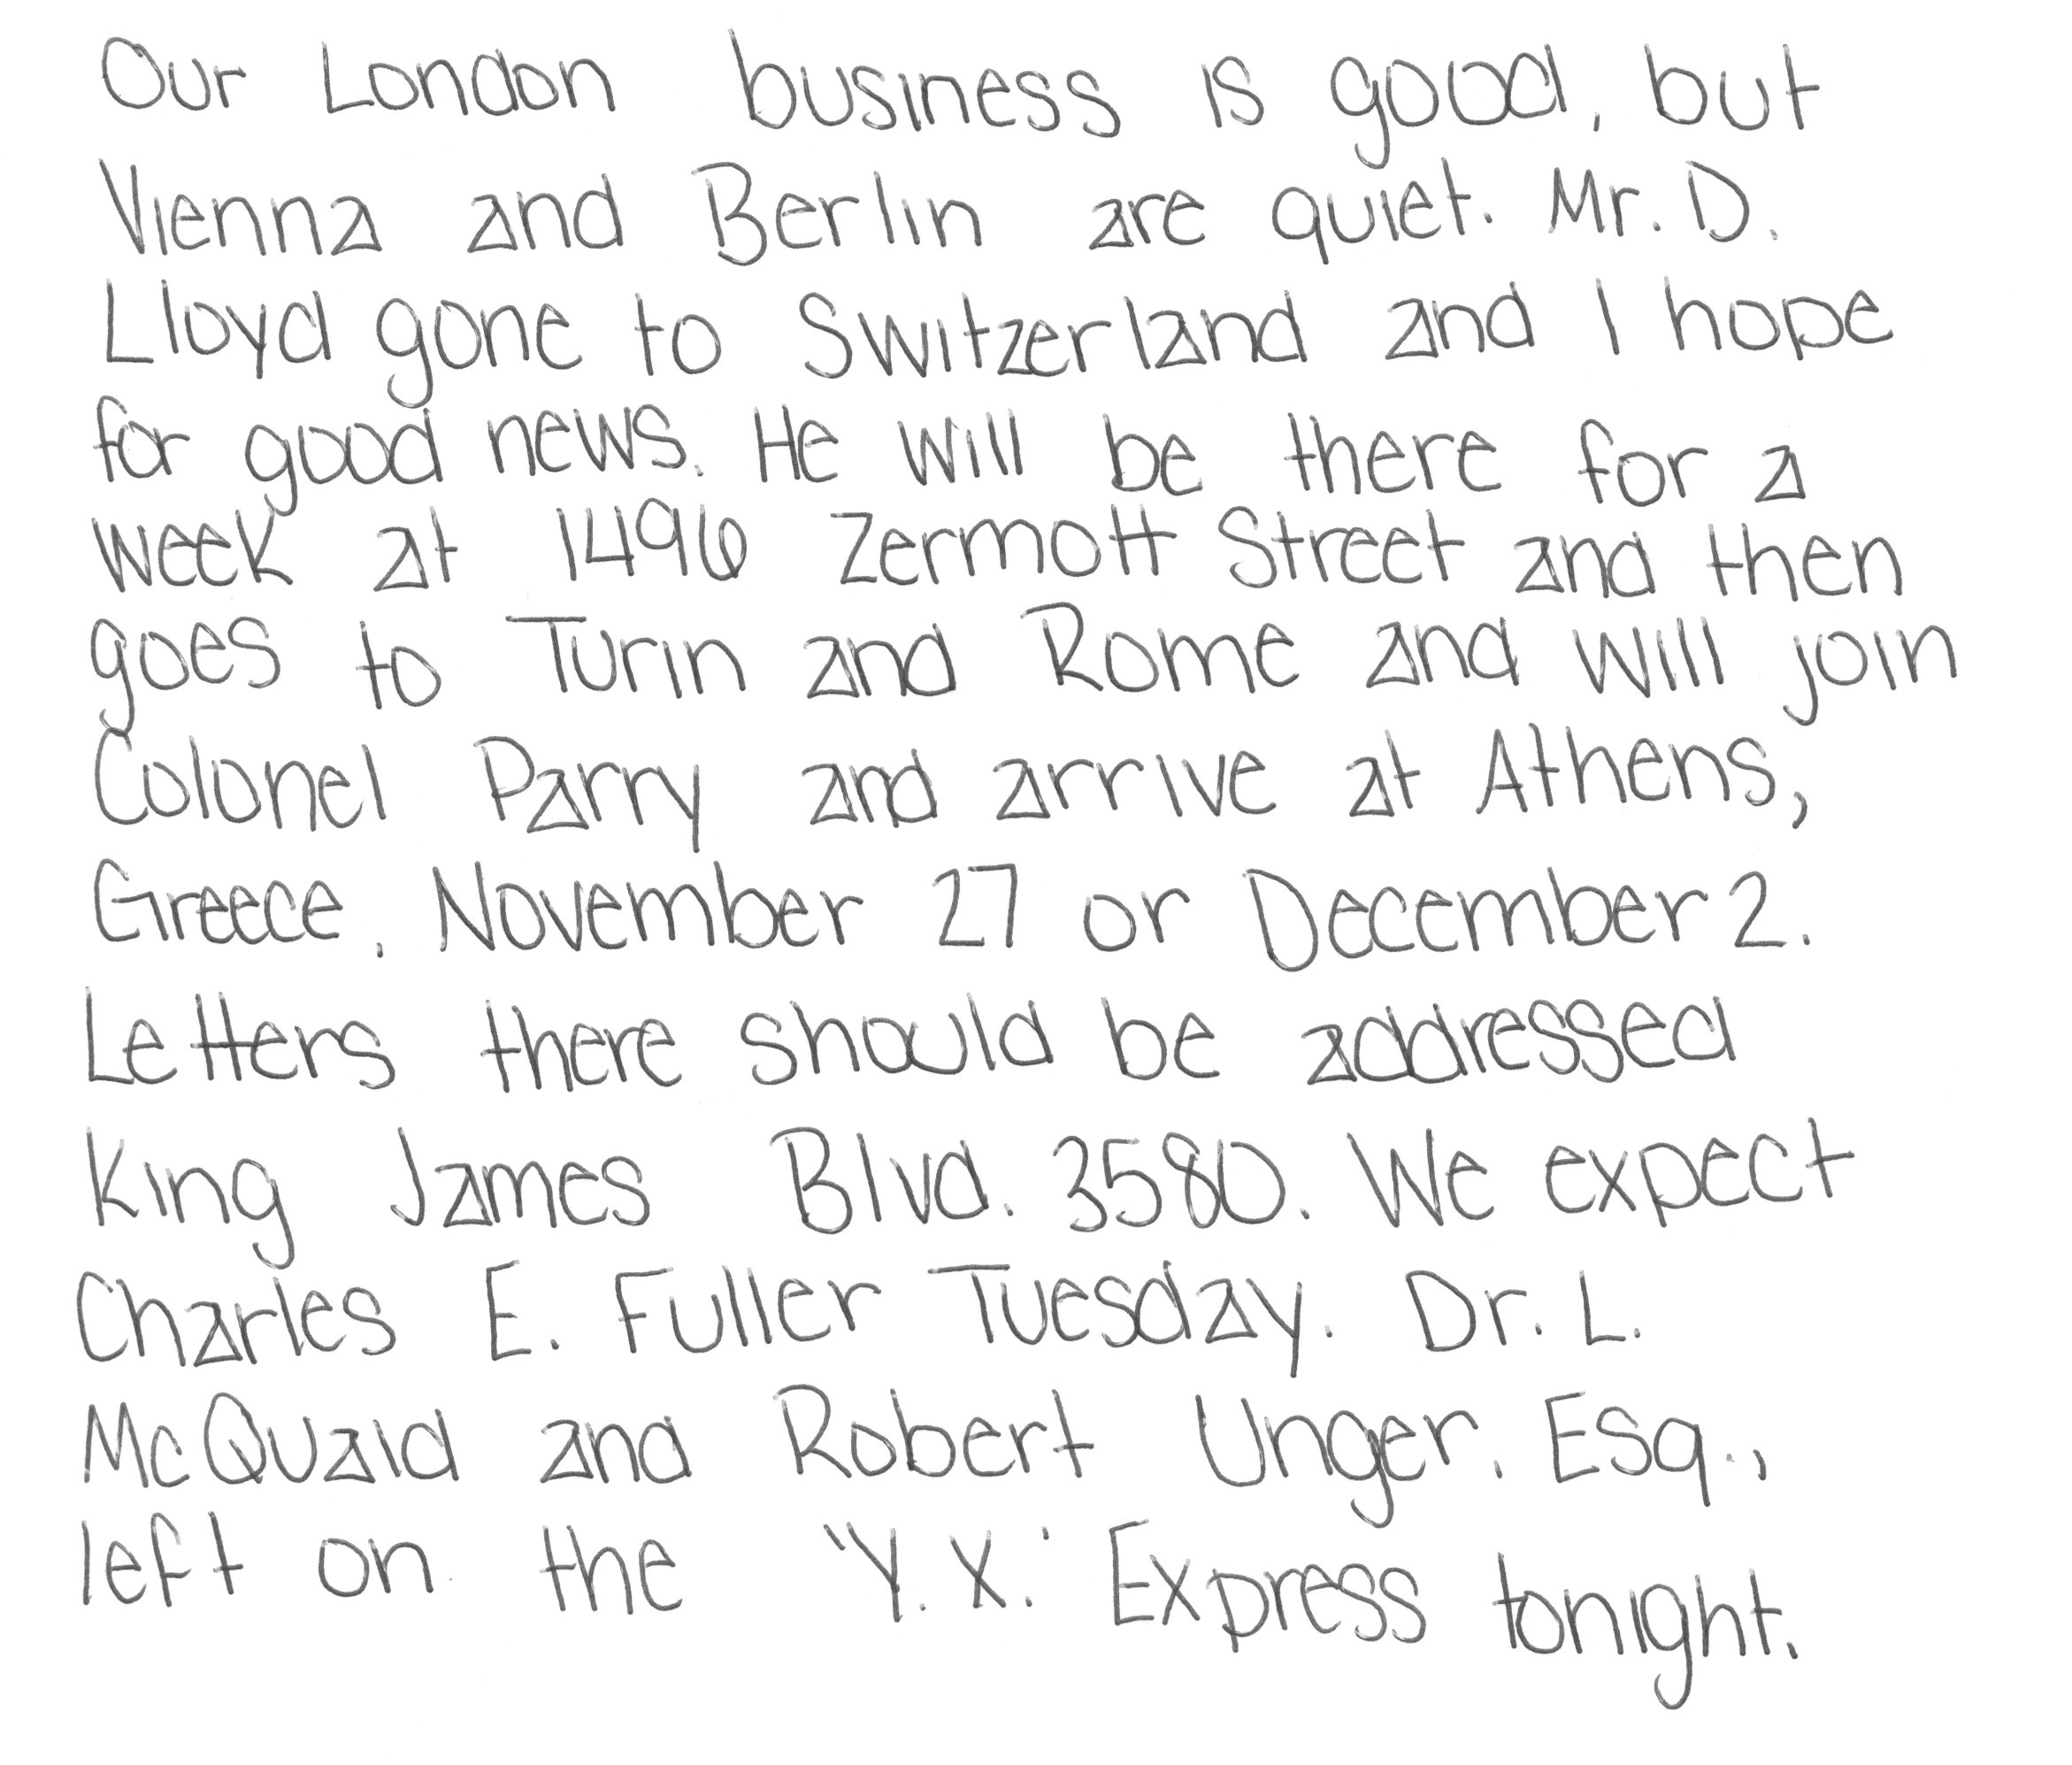 Our London business is good, but
Vienna and Berlin are quiet. Mr. D.
Lloyd gone to Switzerland and I hope
for good news. He will be there for a
week at 1496 Zermott Street and then
goes to Turin and Rome and will join
Colonel Parry and arrive at Athens,
Greece, November 27 or December 2.
Letters there should be addressed
King James Blvd. 3580. We expect
Charles E. Fuller Tuesday. Dr. L.
McQuaid and Robert Unger, Esq.,
left on the "Y. X." Express tonight.